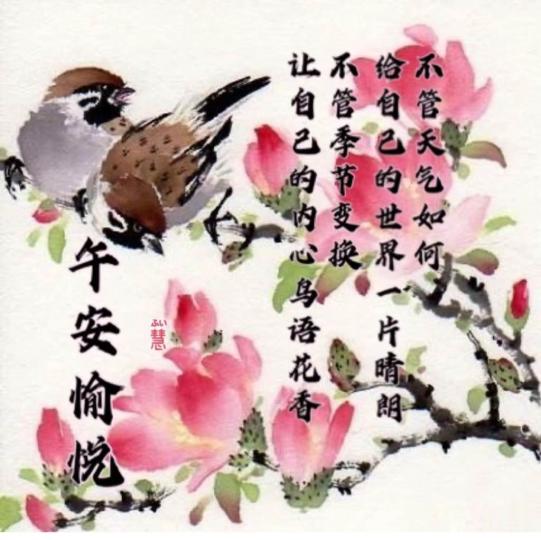 不管天气如何
给自己的世界一片晴朗
不管季节变换
让自己的内心鸟语花香
午安愉悦
慧